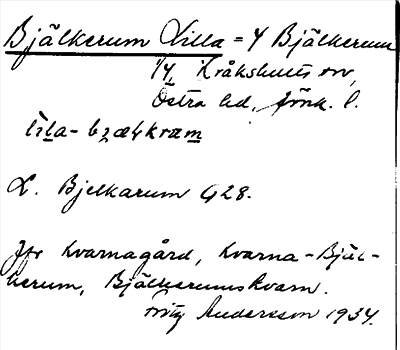 Bjälkerum Lilla = 4 Bjälkerum
1/4, Kråkshults sn,
Östra hd, Jönk. l.
L. Bjelkarum G28.
Jfr Kvarnagård, Kvarna-Bjäl-
kerum, Bjälkerumskvarn.
Fritz Andersson 1934.